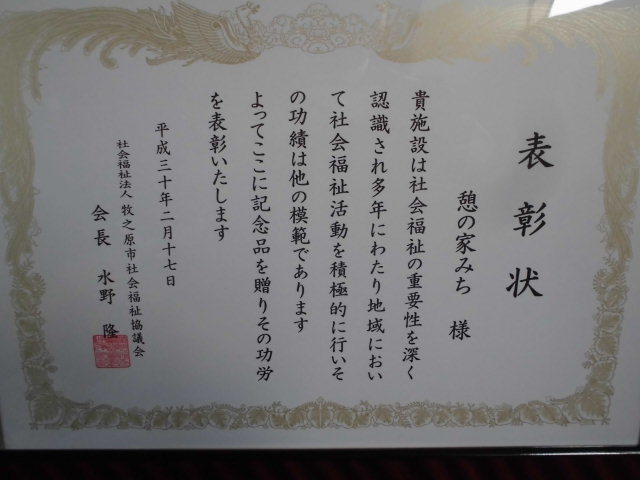 表彰状
憩の家みち 様
貴施設は社会福祉の重要性を深く
認識され多年にわたり地域におい
て社会福祉活動を積極的に行いそ
の功績は他の模範であります
よってここに記念品を贈りその功労
を表彰いたします
平成三十年二月十七日
社会福祉法人 牧之原市社会福祉協議会
会長 水野 隆